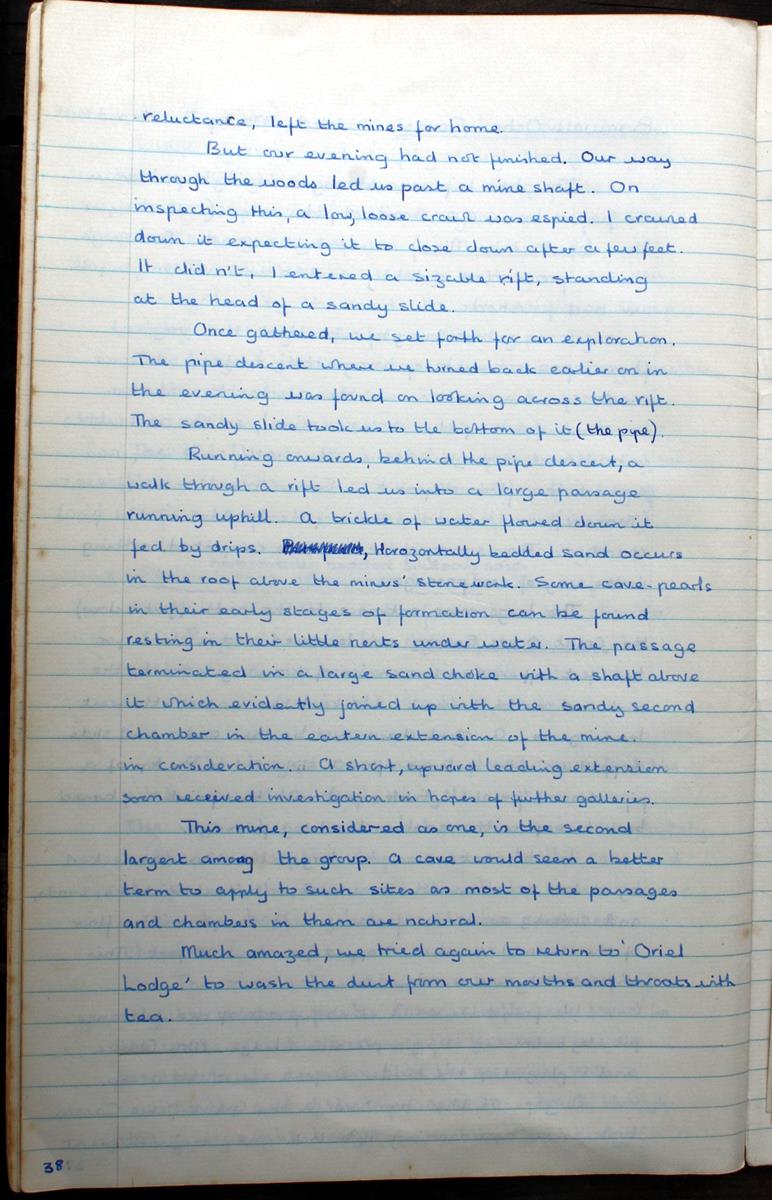 reluctance, left the mines for home.
But our evening had not finished. Our way
through the woods led us past a mine shaft. On
inspecting this, a low, loose crawl was espied. I crawled
down it expecting it to close down after a few feet.
It did n't, I entered a sizable rift, standing
at the head of a sandy slide.
Once gathered, we set forth for an exploration.
The pipe descent where we turned back earlier on in
the evening was found on looking across the rift.
The sandy slide took us to the bottom of it (the pipe).
Running onwards, behind the pipe descent, a
walk through a rift led us into a large passage
running uphill. A trickle of water flowed down it
fed by drips. Horozontally bedded sand occurs
in the roof above the mines' stonework. Some cave-pearls
in their early stages of formation can be found
resting in their little nests under water. The passage
terminated in a large sand choke with a shaft above
it which evidently joined up with the sandy second
chamber in the eastern extension of the mine.
in consideration. A short, upward leading extension
soon received investigation in hopes of further galleries.
This mine, considered as one, is the second
largest among the group. A cave would seem a better
term to apply to such sites as most of the passages
and chambers in them are natural.
Much amazed, we tried again to return to 'Oriel
Lodge' to wash the dust from our mouths and throats with
tea.
38